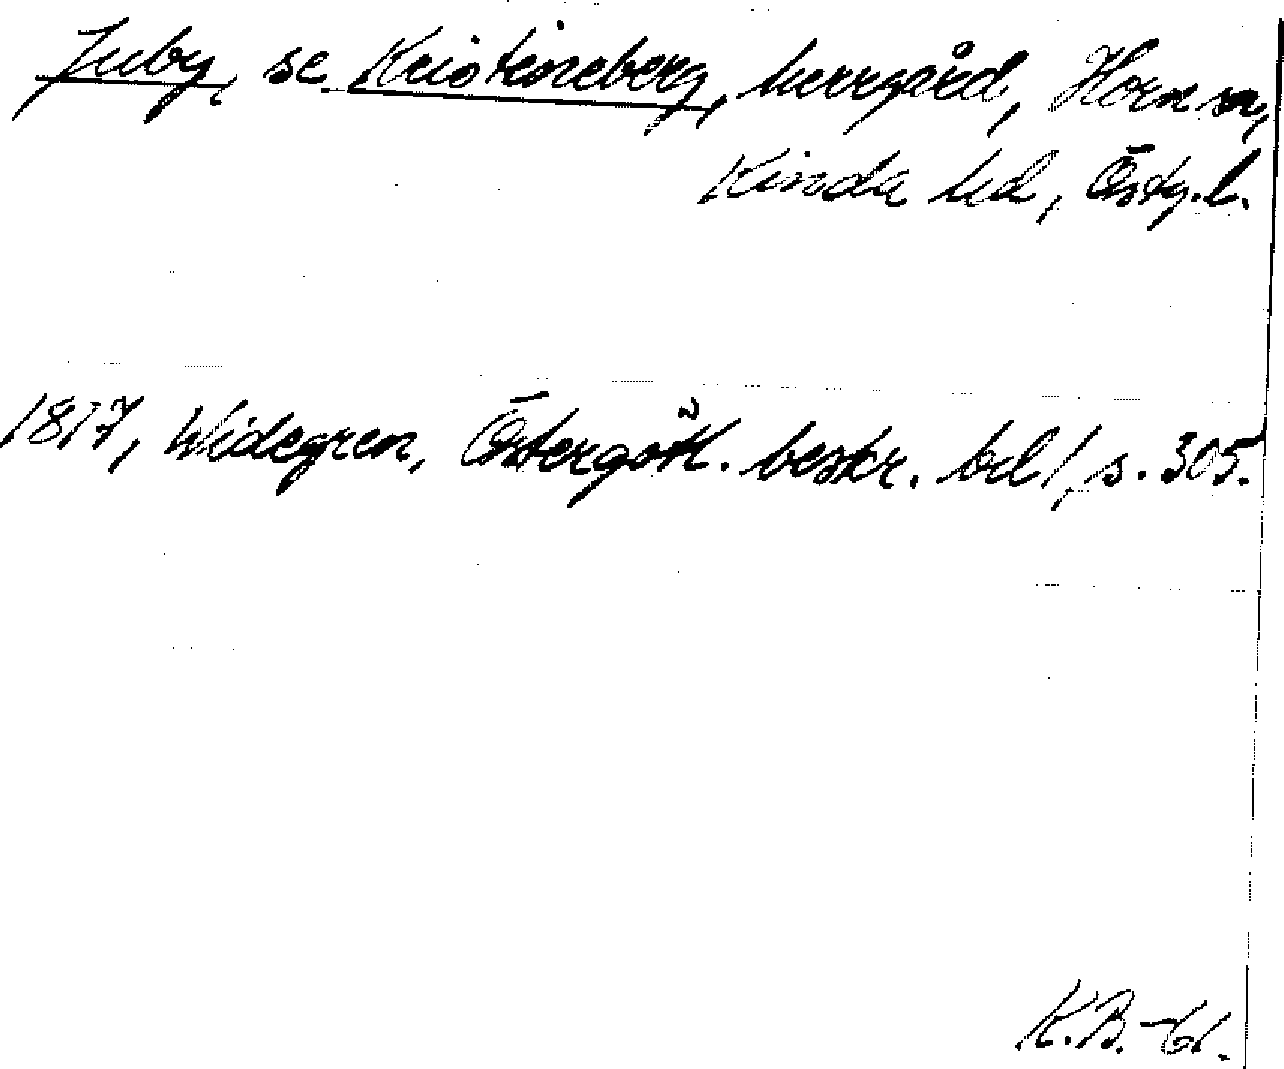 Juby, se Kristineberg, herrgård, Horn sn,
Kinda hd, Östg.l.
1817, Widegren, Östergötl. beskr. bd 1, s. 305.
K.B.-61.